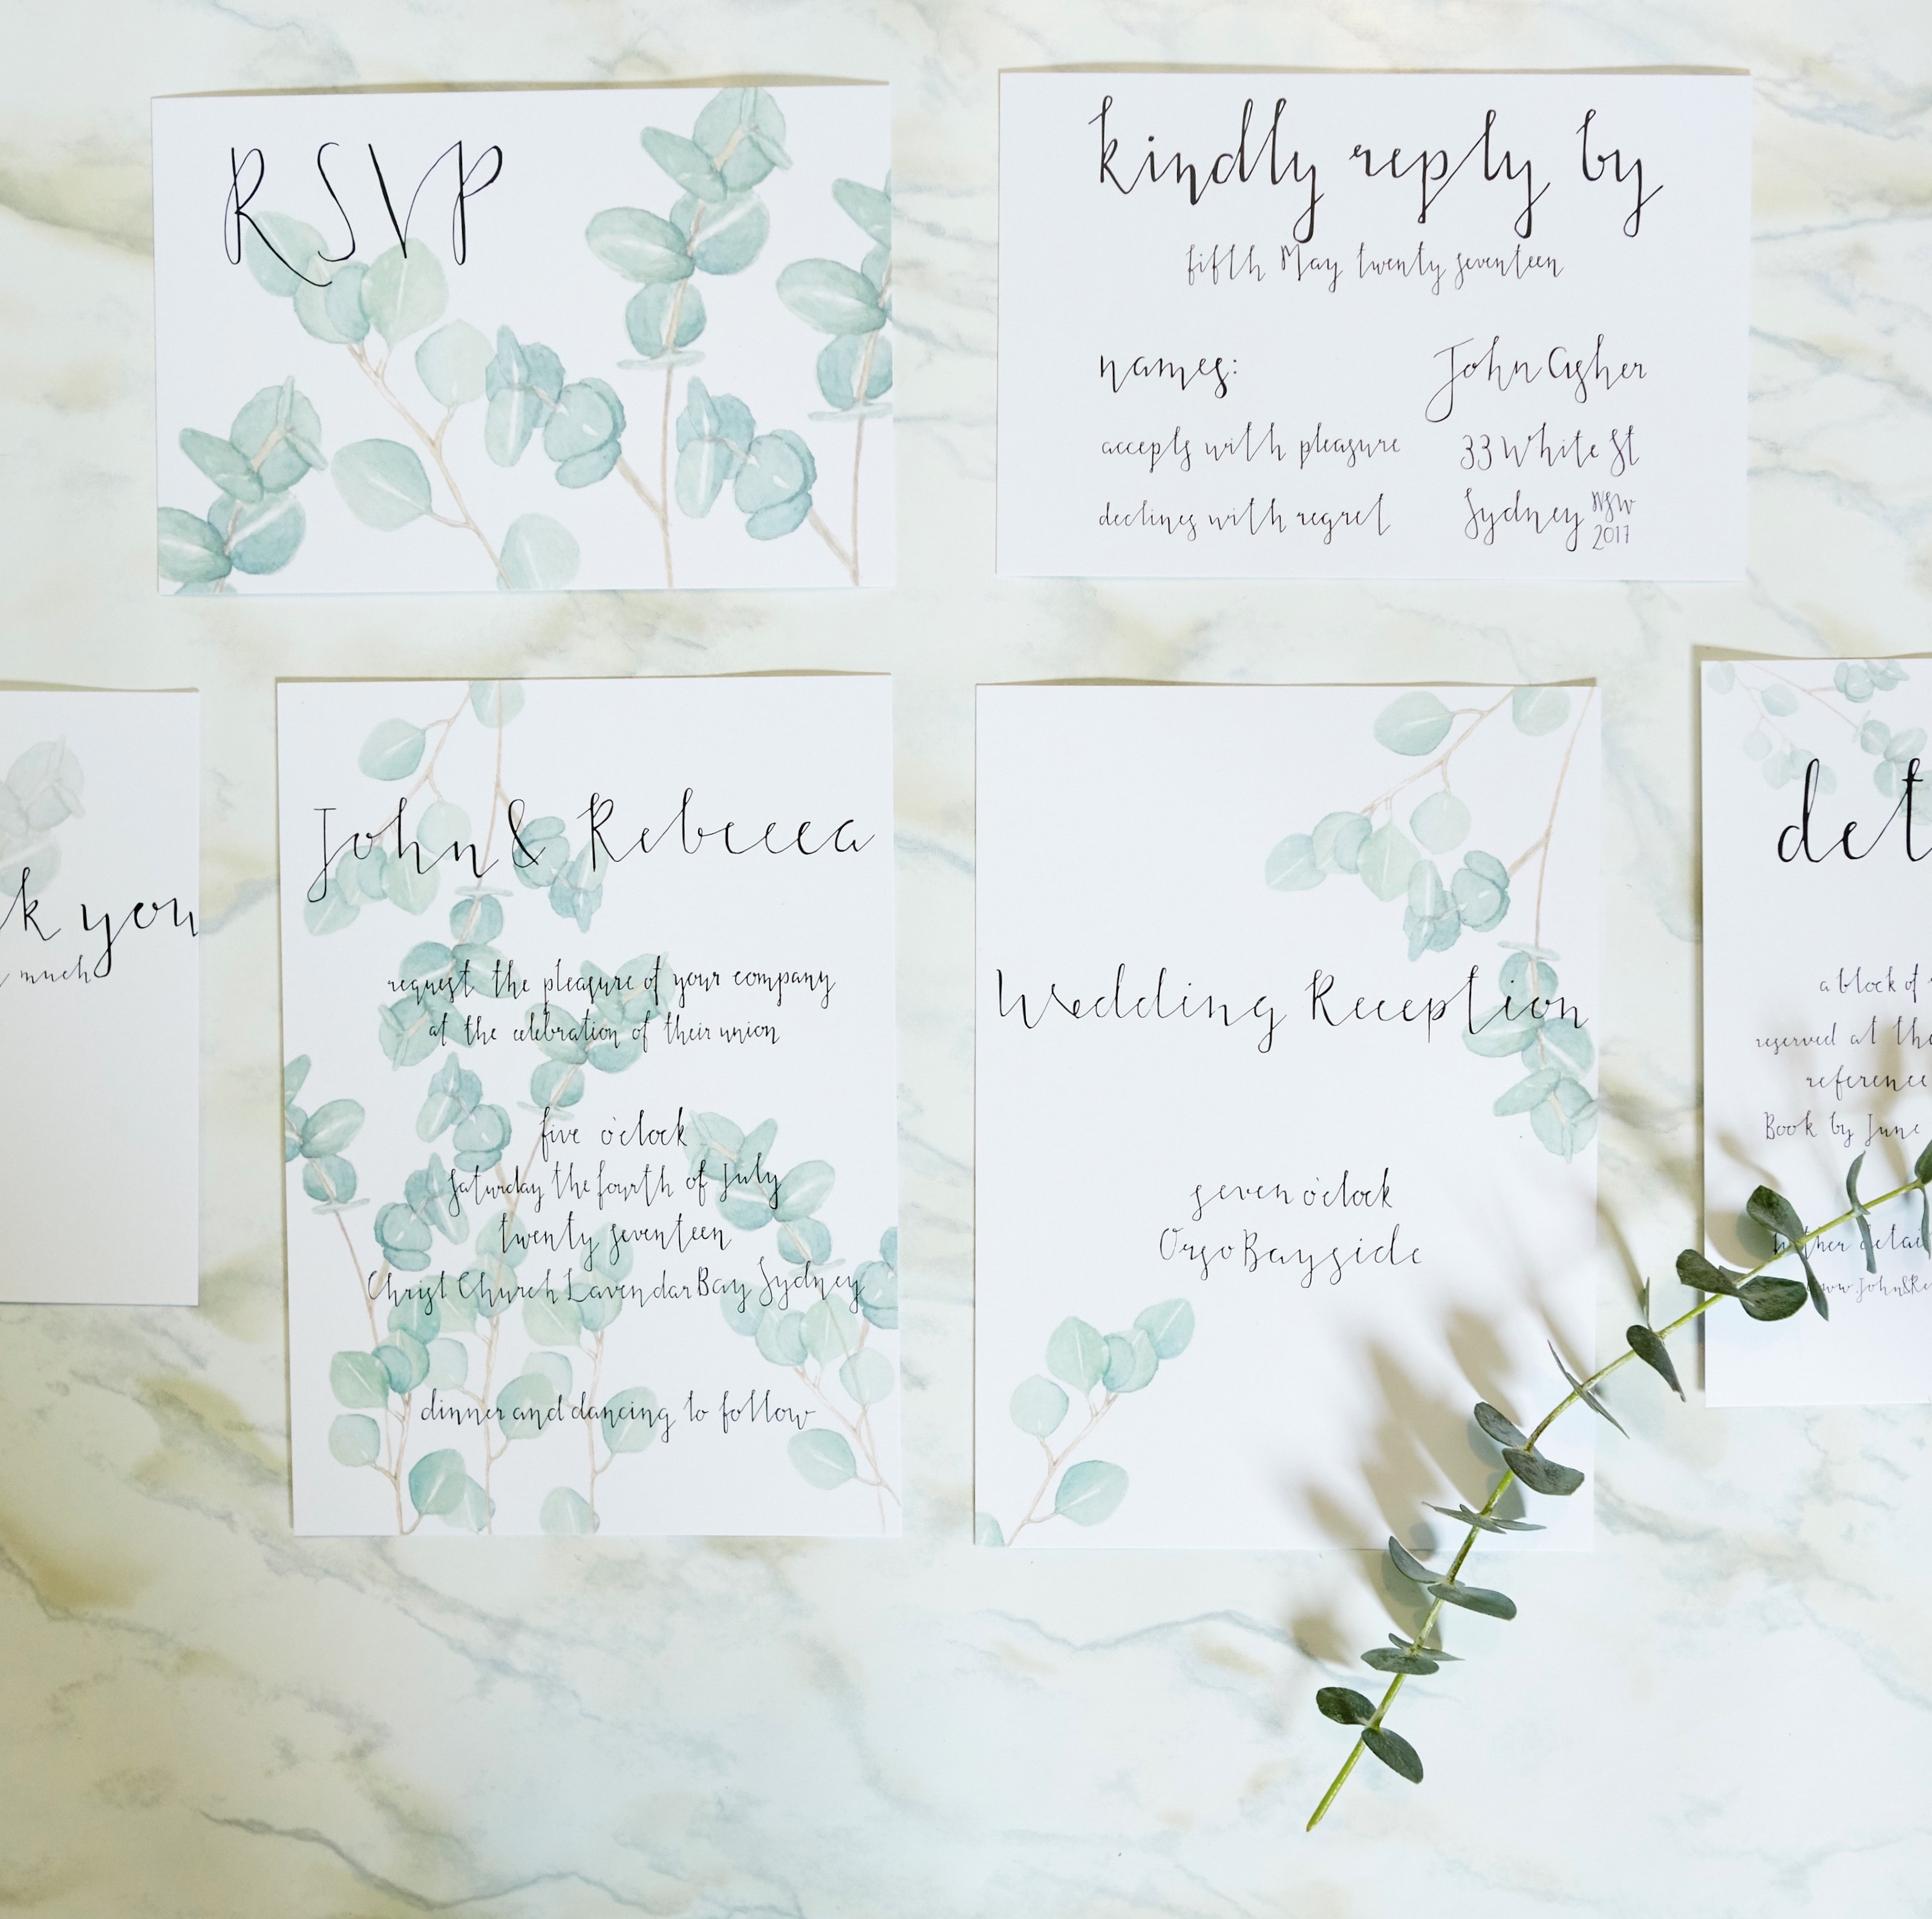 RSVP
kindly reply by
fifth May twenty seventeen
names:
accepts with pleasure
declines with regret
John Asher
33 White St
Sydney NSW 2017
k you
much
John & Rebecca
request the pleasure of your company
at the celebration of their union
five o'clock
Saturday the fourth of July
twenty seventeen
Christ Church Lavendar Bay Sydney
dinner and dancing to follow
Wedding Reception
seven o'clock
Orso Bayside
det
a block of
reserved at the
reference
Book by June
www.John&Re